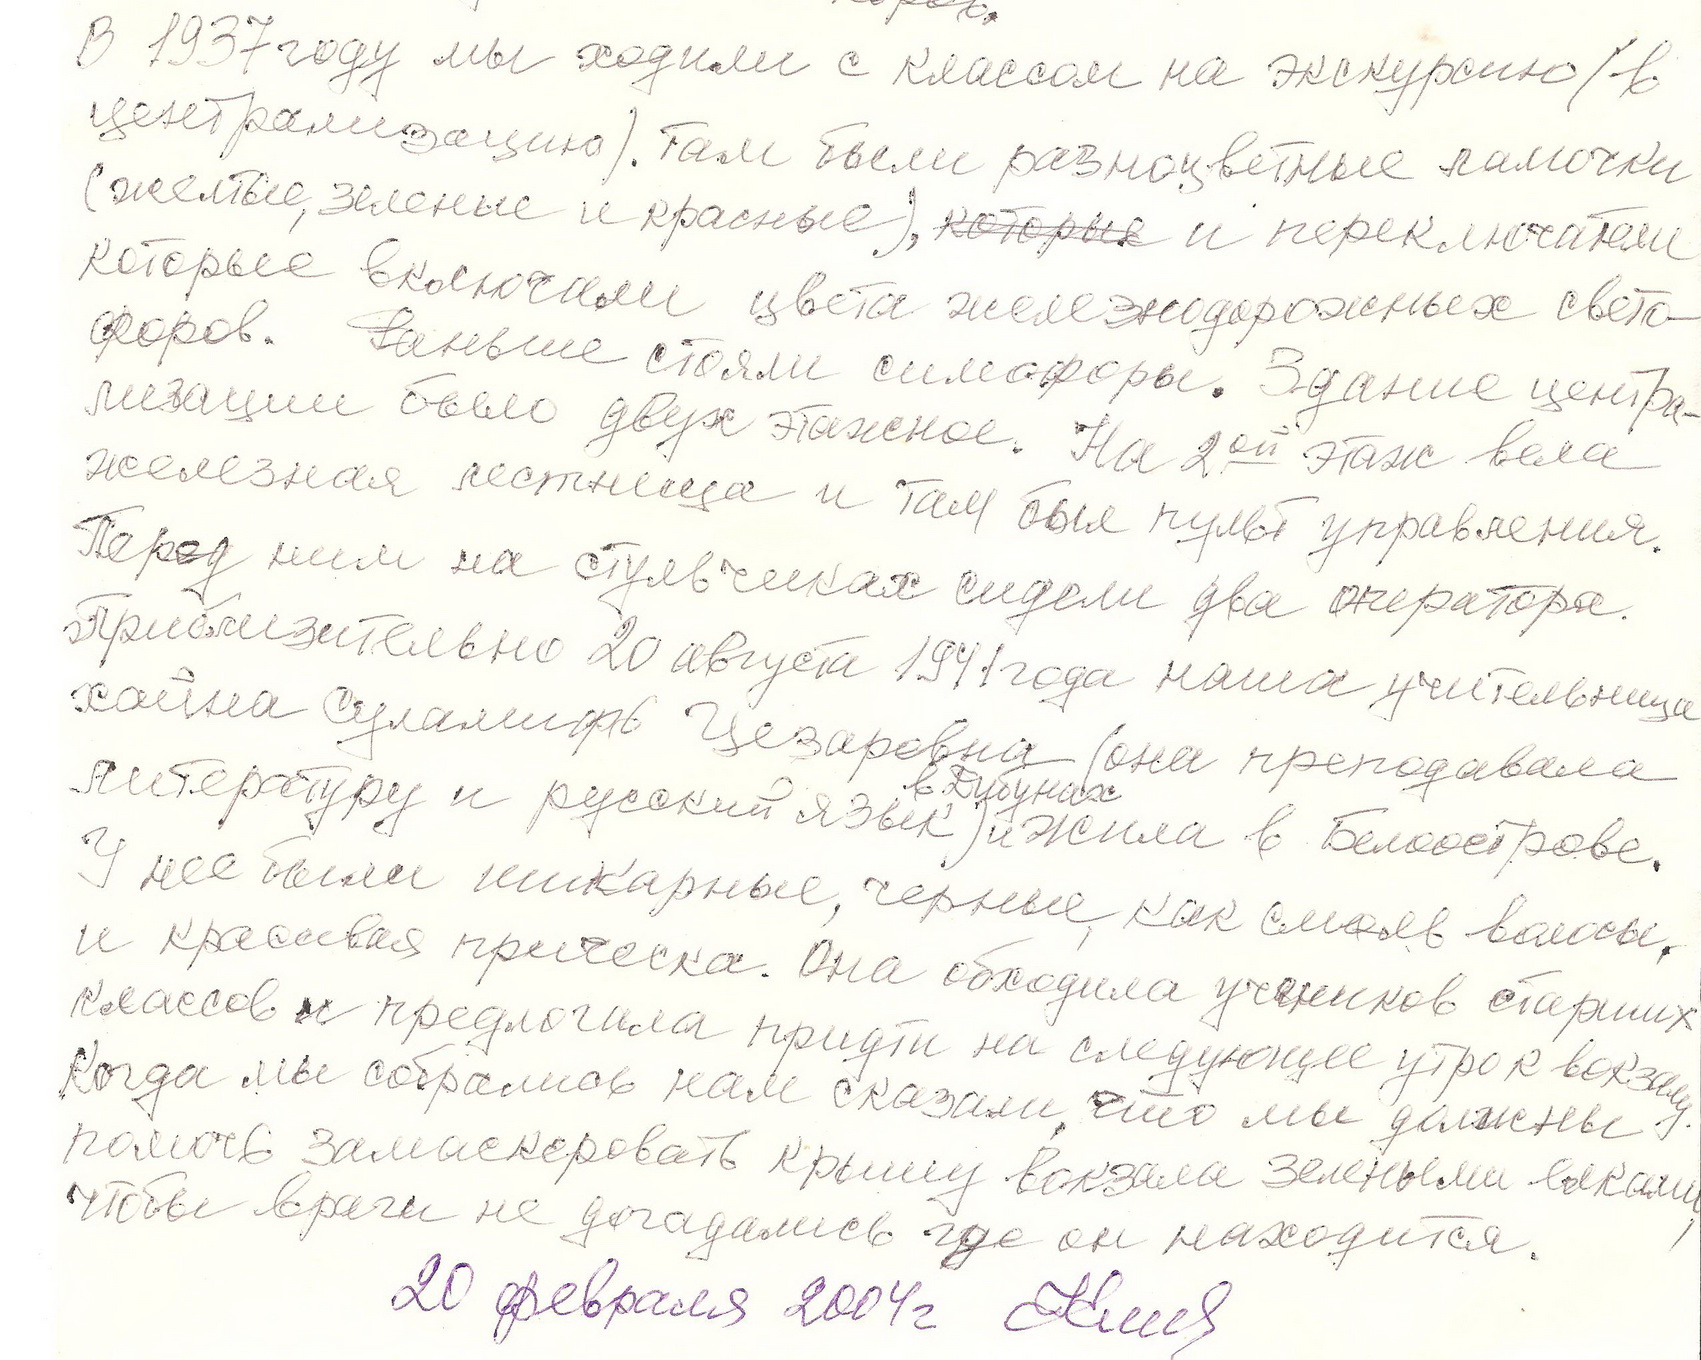 В 1937 году мы ходили с классом на экскурсию (в
централизацию). Там были разноцветные лампочки
(желтые, зеленые и красные), которые и переключатели
которые включали цвета железнодорожных свето-
форов. Раньше стояли симафоры. Здание центра-
лизации было двух этажное. На 2ой этаж вела
железная лестница и там был пульт управления.
Перед ним на стульчиках сидели два оператора.
Приблизительно 20 августа 1941 года наша учительница
Хайна Суламифь Цезаревна (она преподавала
литературу и русский язык) и жила в Белоострове.
в Дибунах
У нее были шикарные, черные, как смоль волосы.
и красивая прическа. Она обходила учеников старших
классов и предложила придти на следующее утро к вокзалу.
Когда мы собрались нам сказали, что мы должны
помочь замаскировать крышу вокзала зелеными елками,
чтобы враги не догадались где он находится.
20 февраля 2004г